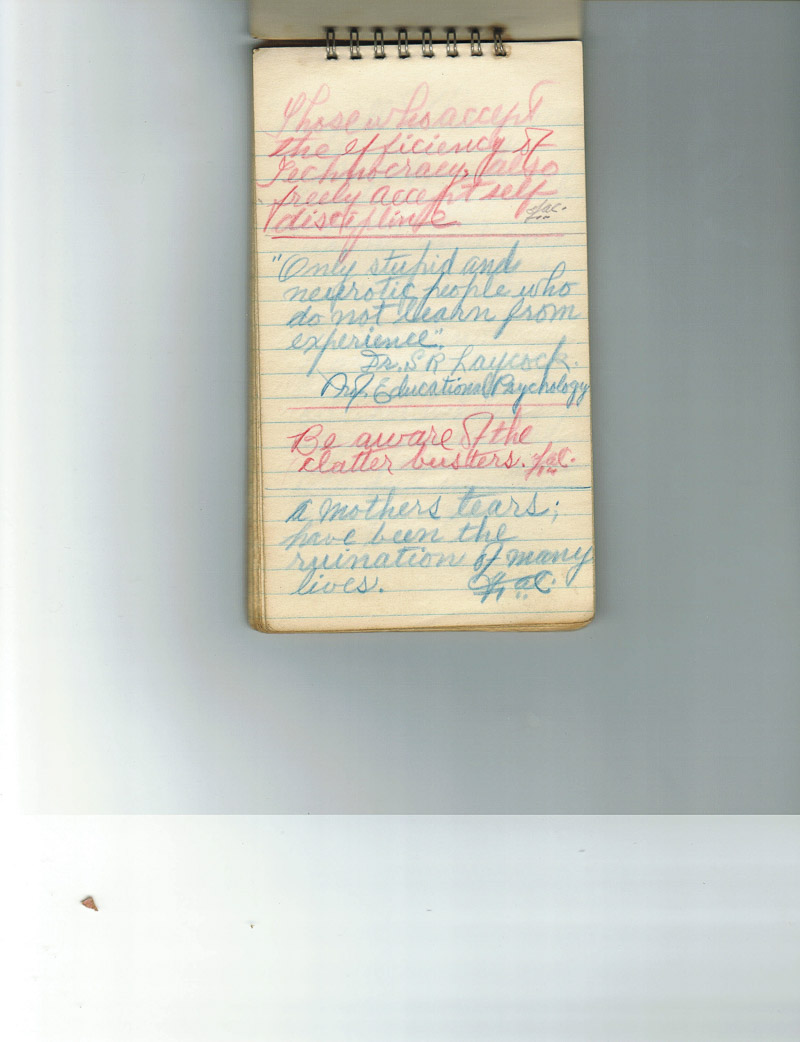 Those who accept
the efficiency of
Technocracy, also
freely accept self
discipline.
"Only stupid and
neurotic people who
do not learn from
experience".
Dr. S R Laycock.
Prof. Educational Psychology
Be aware of the
clatter busters.
A mothers tears;
have been the
ruination of many
lives.